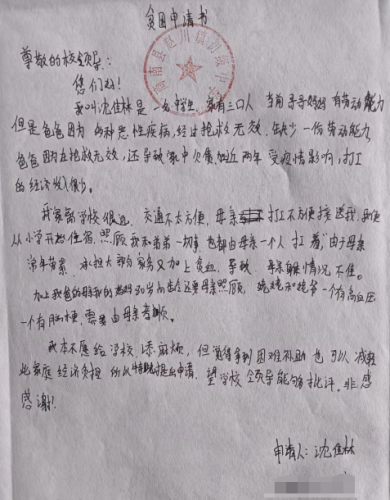 贫困申请书
尊敬的校领导：
您们好！
我叫沈佳林是一名学生，家有三口人 当前 有劳动能力
但是爸爸因为 各种恶性疾病，经过抢救无效，缺少一份劳动能力，
爸爸因为抢救无效，还导致家中欠债，加近两年受疫情影响，打工
的经济收入少。
我家离学校很远，交通不太方便，母亲 打工不方便接送我，所以
从小学开始住宿，照顾我和弟弟一切事 也都由母亲一个人扛着，由于母亲
常年劳累，承担大部分家务又加上贫血，导致 母亲身体情况不佳。
加上我爸的母亲 还要母亲照顾， 一个有高血压
一个有脑梗，需要由母亲孝顺。
我本不应给学校添麻烦，但觉得拿到困难补助也可以减轻
此家庭经济负担 所以特此提出申请，望学校领导能够批评。非常
感谢！
申请人：沈佳林